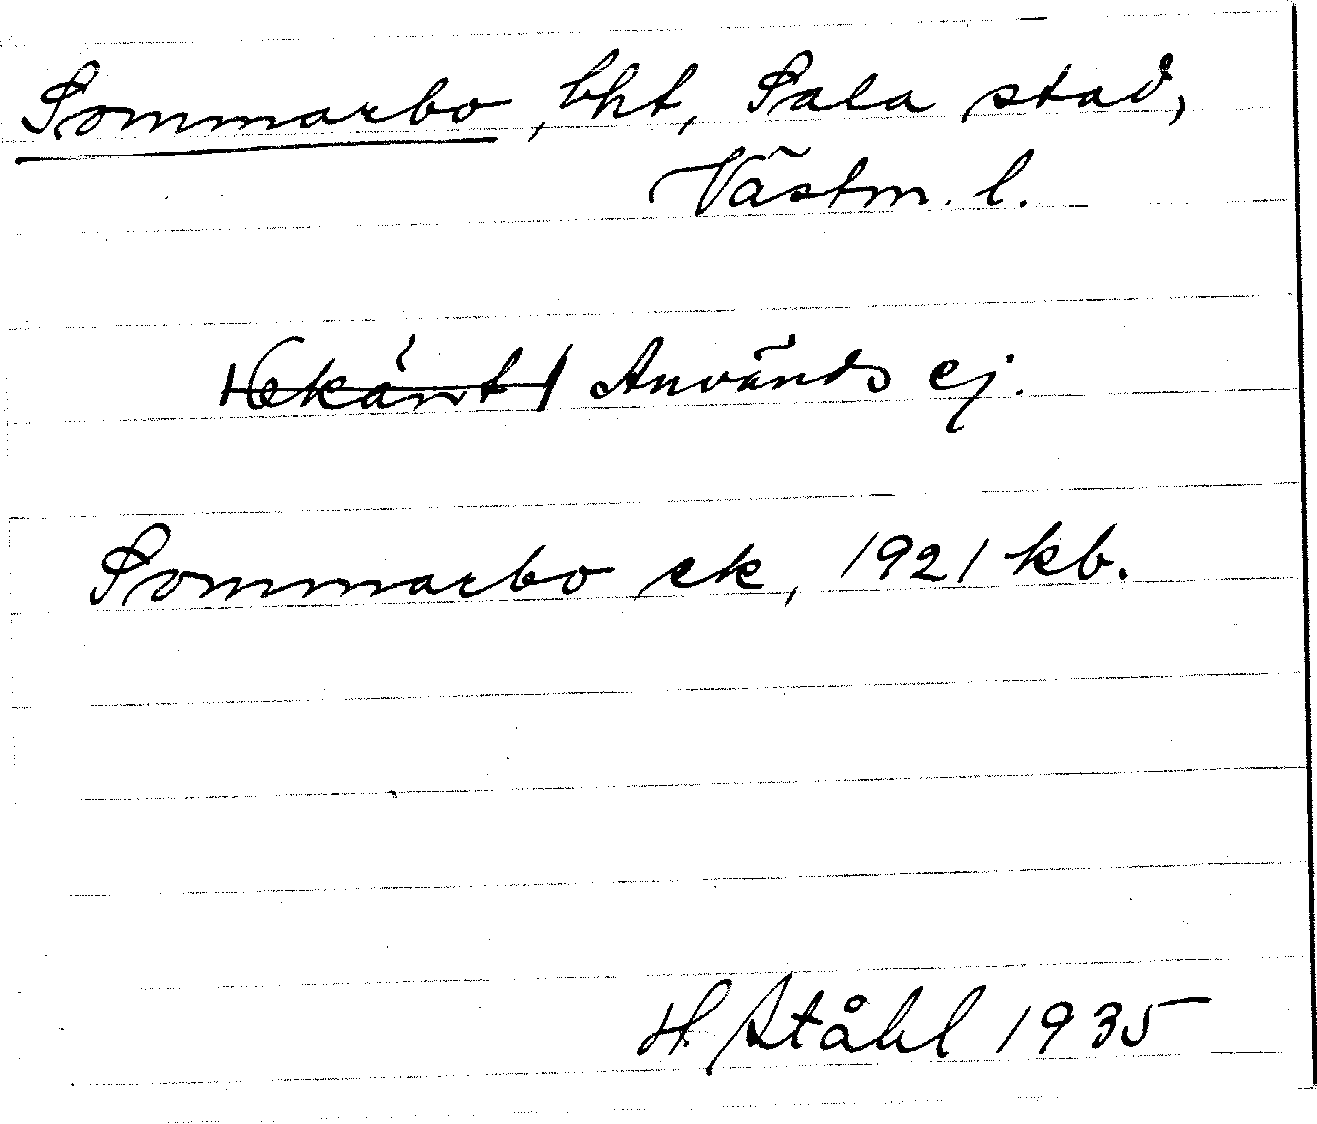 Sommarbo, lht, Sala stad,
Västm. l.
Används ej.
Sommarbo ek, 1921 kb.
H Ståhl 1935